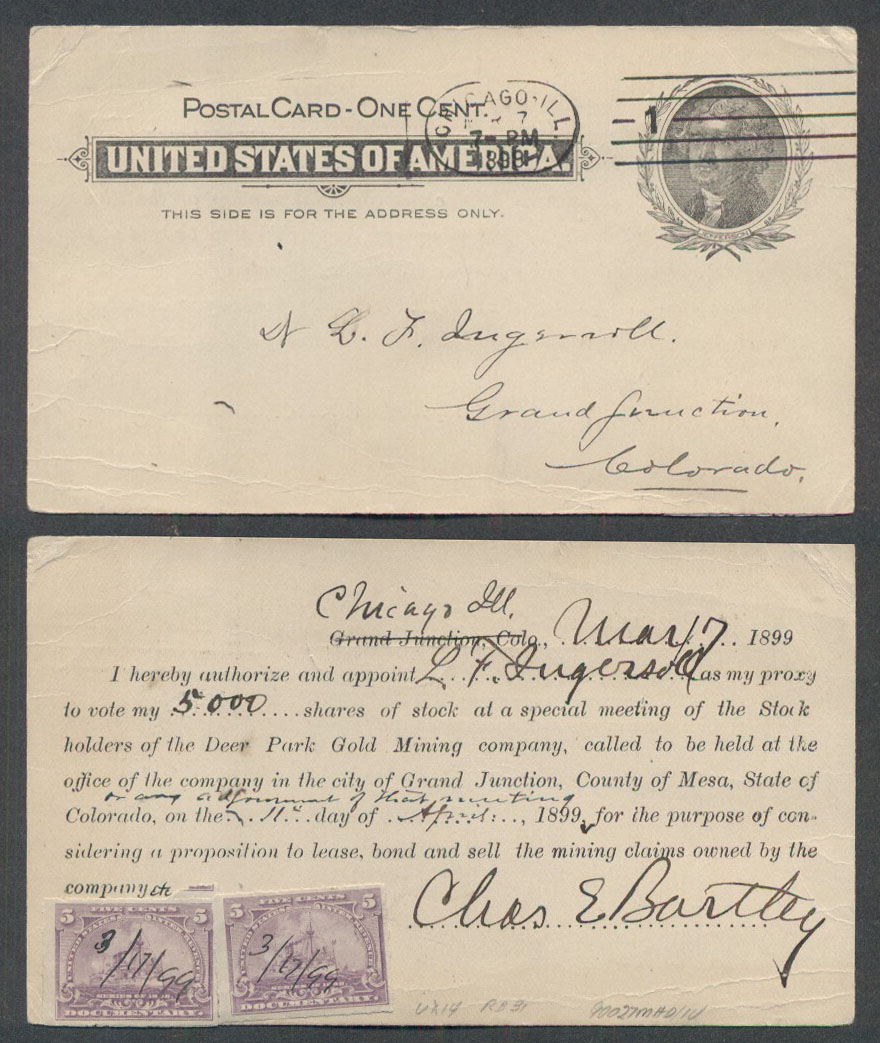 POSTAL CARD - ONE CENT.
UNITED STATES OF AMERICA.
THIS SIDE IS FOR THE ADDRESS ONLY.
CHICAGO·ILL.
7
7-PM
1
JEFFERSON
L. F. Ingersoll.
Grand Junction,
Colorado.
Chicago Ill.
Grand Junction, Colo., Mar 17 1899
I hereby authorize and appoint L. F. Ingersoll as my proxy
to vote my 5000 shares of stock at a special meeting of the Stock
holders of the Deer Park Gold Mining company, called to be held at the
office of the company in the city of Grand Junction, County of Mesa, State of
or any adjournment of that meeting
Colorado, on the 11th day of April, 1899, for the purpose of con-
sidering a proposition to lease, bond and sell the mining claims owned by the
company etc
Chas E Bartley
FIVE CENTS
5 5
UNITED STATES INTER. REVENUE
3/17/99
SERIES OF 1898
DOCUMENTARY.
FIVE CENTS
5 5
UNITED STATES INTER. REVENUE
3/17/99
SERIES OF 1898
DOCUMENTARY.
UX14